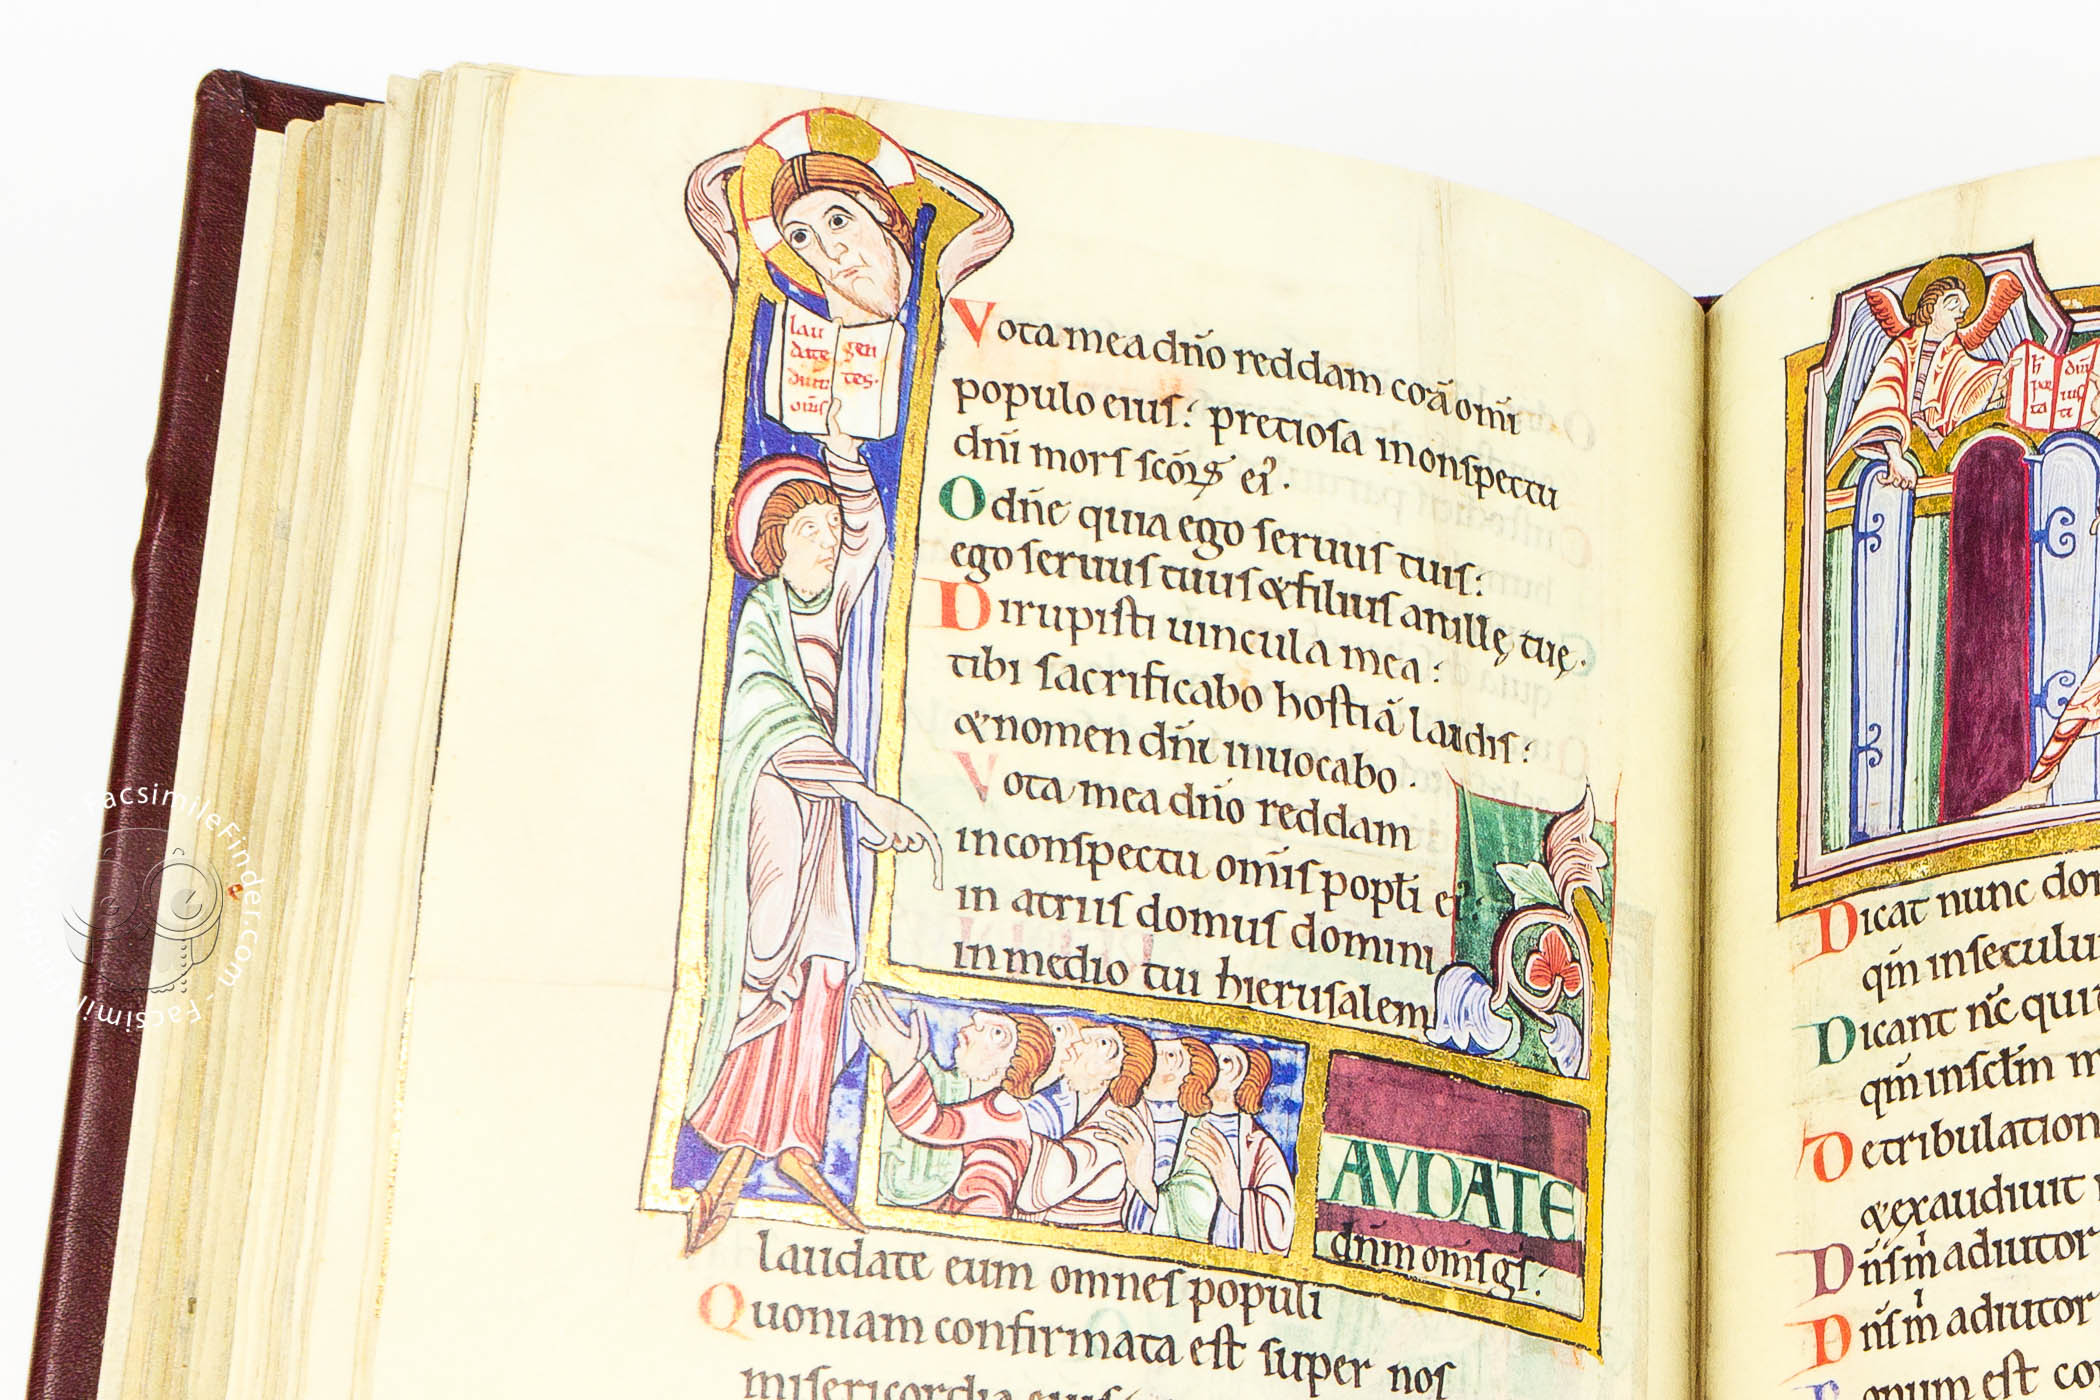 lau
date
dnm
oms
gen
tes.
Vota mea dño reddam corā omi
populo eius: pretiosa in conspectu
dñi mors scōrum ei.
O dñe quia ego seruus tuis:
ego seruus tuus & filius ancillę tuę.
Dirupisti uincula mea:
tibi sacrificabo hostiā laudis:
& nomen dñi inuocabo.
Vota mea dño reddam
in conspectu omis popli ei.
in atriis domus domini
in medio tui hierusalem
LAVDATE
dnm oms gs.
laudate eum omnes populi
Quoniam confirmata est super nos
misericordia eius
Dicat nunc do
qm in seculu
Dicant nc qui
qm in sclm m
De tribulation
& exaudiuit
Dns m adiutor
Dns m adiutor
Bonum est co
facsimileFinder.com